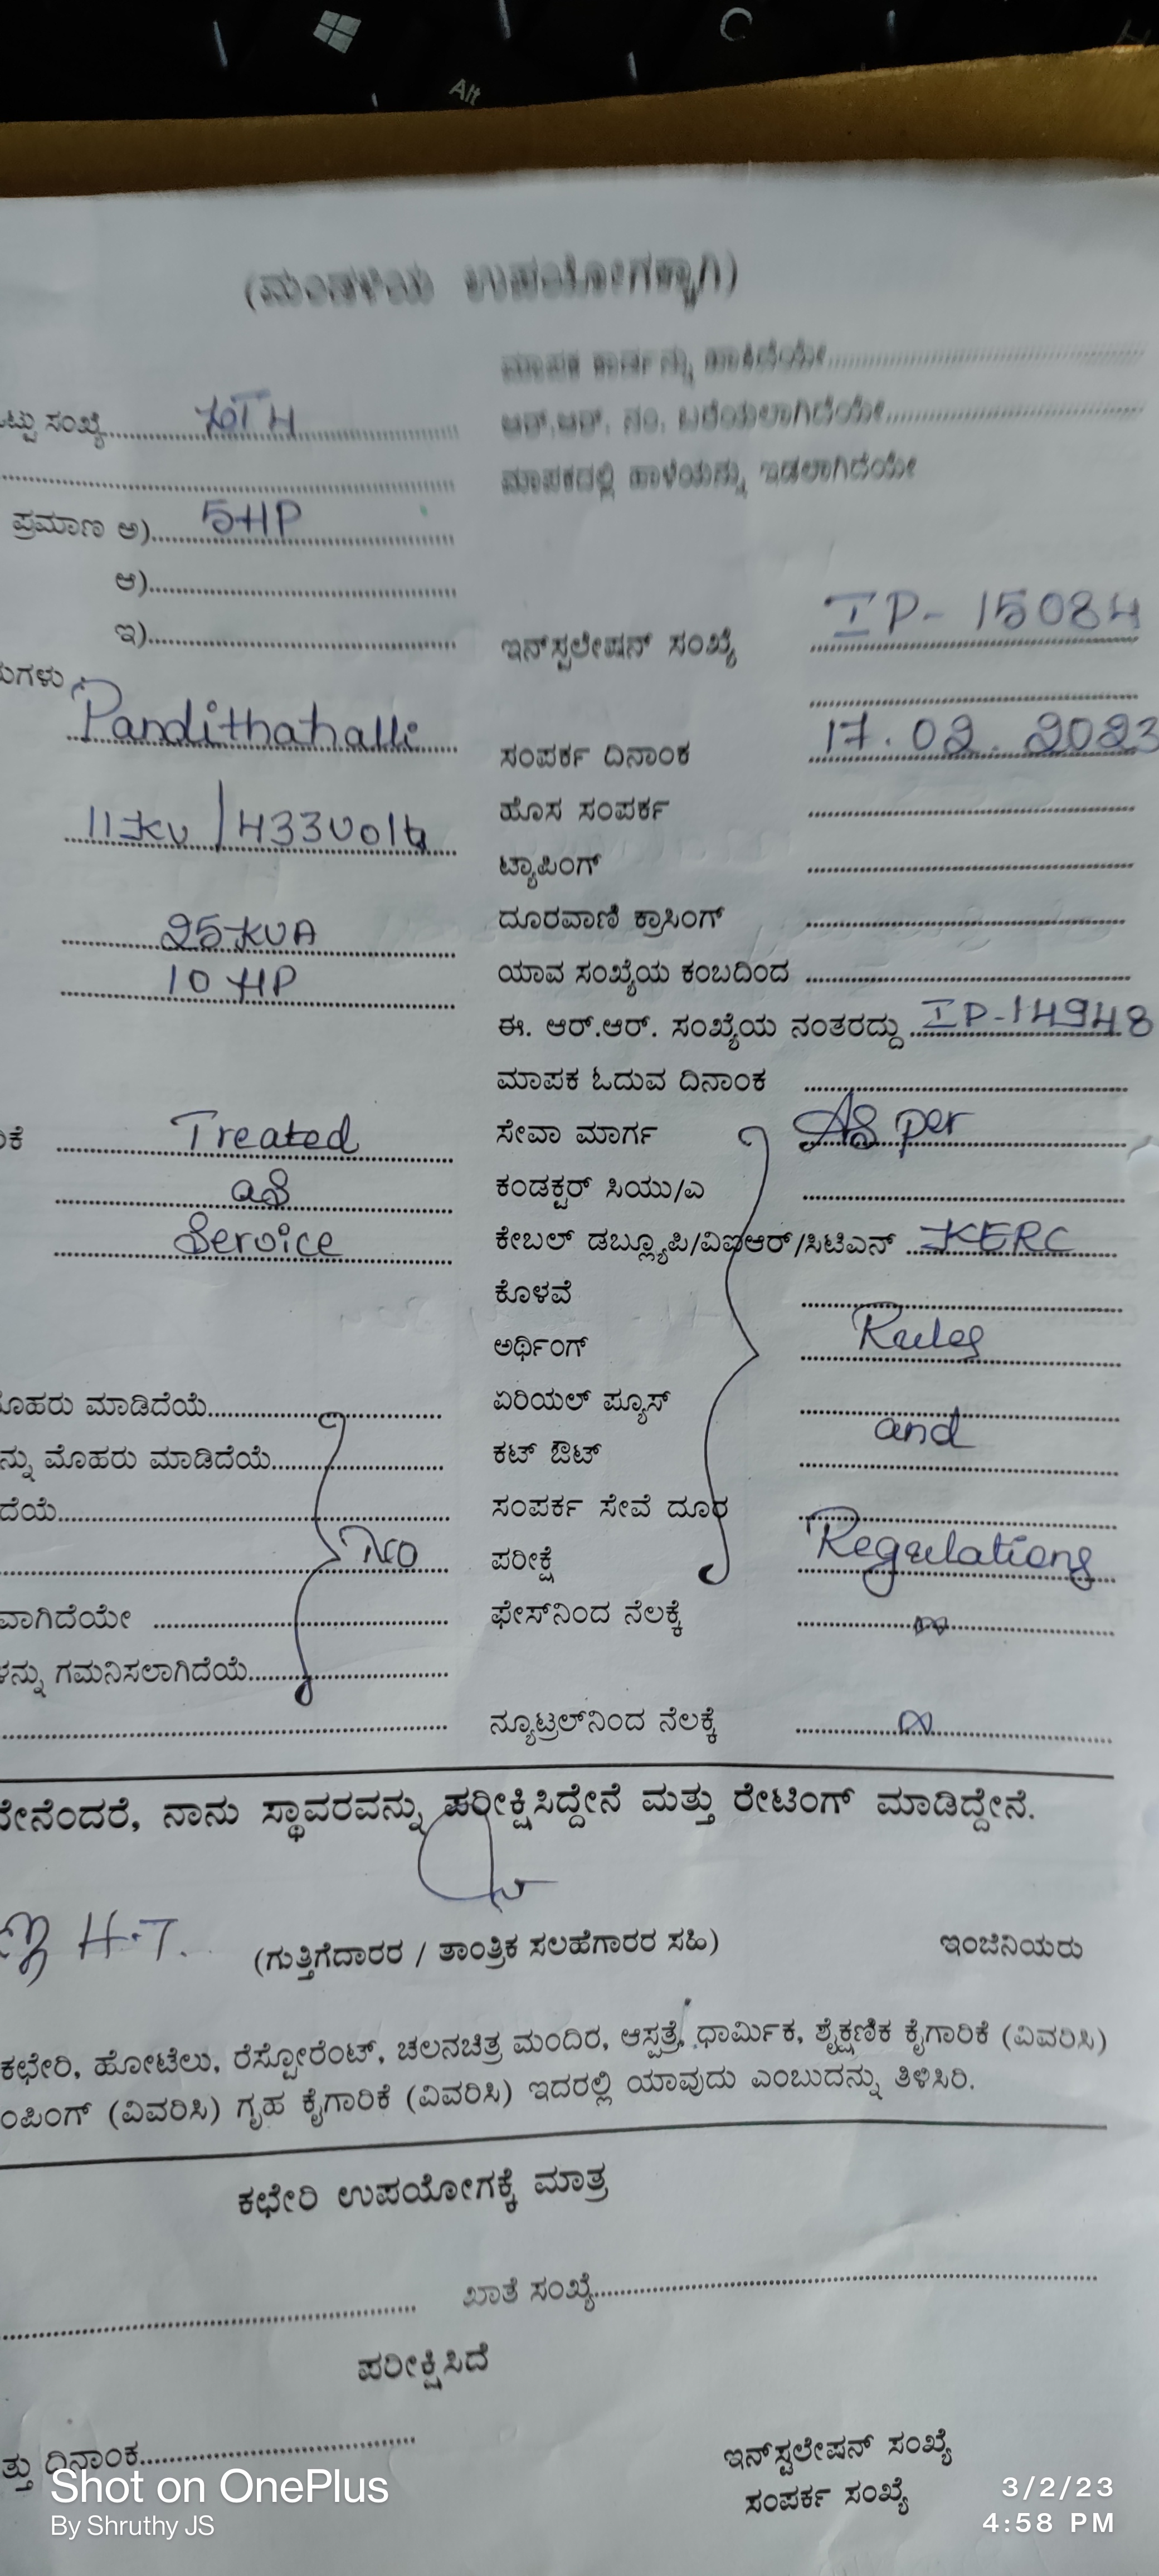 Alt
ಟ್ಟು ಸಂಖ್ಯೆ
ಮಾಪಕದಲ್ಲಿ ಹಾಳೆಯನ್ನು ಇಡಲಾಗಿದೆಯೇ
ಪ್ರಮಾಣ ಅ) 5HP
ಆ)
ಇ)
ಇನ್‌ಸ್ಟಲೇಷನ್ ಸಂಖ್ಯೆ IP- 15084
Pandithahalli
ಸಂಪರ್ಕ ದಿನಾಂಕ 17.02.2023
11 kv / 433 Volts ಹೊಸ ಸಂಪರ್ಕ
ಟ್ಯಾಪಿಂಗ್
25 KVA ದೂರವಾಣಿ ಕ್ರಾಸಿಂಗ್
10 HP ಯಾವ ಸಂಖ್ಯೆಯ ಕಂಬದಿಂದ
ಈ. ಆರ್.ಆರ್. ಸಂಖ್ಯೆಯ ನಂತರದ್ದು IP-14948
ಮಾಪಕ ಓದುವ ದಿನಾಂಕ
ಕೆ Treated ಸೇವಾ ಮಾರ್ಗ As per
as ಕಂಡಕ್ಟರ್ ಸಿಯು/ಎ
Service ಕೇಬಲ್ ಡಬ್ಲ್ಯೂಪಿ/ವಿಐಆರ್/ಸಿಟಿಎನ್ KERC
ಕೊಳವೆ
ಅರ್ಥಿಂಗ್ Rules
ೊಹರು ಮಾಡಿದೆಯೆ ಏರಿಯಲ್ ಫ್ಯೂಸ್
ನ್ನು ಮೊಹರು ಮಾಡಿದೆಯೆ ಕಟ್ ಔಟ್ and
ದೆಯೆ ಸಂಪರ್ಕ ಸೇವೆ ದೂರ
No ಪರೀಕ್ಷೆ Regulations
ವಾಗಿದೆಯೇ ಫೇಸ್‌ನಿಂದ ನೆಲಕ್ಕೆ ∞
ಳನ್ನು ಗಮನಿಸಲಾಗಿದೆಯೆ
ನ್ಯೂಟ್ರಲ್‌ನಿಂದ ನೆಲಕ್ಕೆ ∞
ನೇನೆಂದರೆ, ನಾನು ಸ್ಥಾವರವನ್ನು ಪರೀಕ್ಷಿಸಿದ್ದೇನೆ ಮತ್ತು ರೇಟಿಂಗ್ ಮಾಡಿದ್ದೇನೆ.
H.T. (ಗುತ್ತಿಗೆದಾರರ / ತಾಂತ್ರಿಕ ಸಲಹೆಗಾರರ ಸಹಿ) ಇಂಜಿನಿಯರು
ಕಛೇರಿ, ಹೋಟೆಲು, ರೆಸ್ಟೋರೆಂಟ್, ಚಲನಚಿತ್ರ ಮಂದಿರ, ಆಸ್ಪತ್ರೆ, ಧಾರ್ಮಿಕ, ಶೈಕ್ಷಣಿಕ ಕೈಗಾರಿಕೆ (ವಿವರಿಸಿ)
ಂಪಿಂಗ್ (ವಿವರಿಸಿ) ಗೃಹ ಕೈಗಾರಿಕೆ (ವಿವರಿಸಿ) ಇದರಲ್ಲಿ ಯಾವುದು ಎಂಬುದನ್ನು ತಿಳಿಸಿರಿ.
ಕಛೇರಿ ಉಪಯೋಗಕ್ಕೆ ಮಾತ್ರ
ಖಾತೆ ಸಂಖ್ಯೆ
ಪರೀಕ್ಷಿಸಿದೆ
ತ್ತು ದಿನಾಂಕ
ಇನ್‌ಸ್ಟಲೇಷನ್ ಸಂಖ್ಯೆ
ಸಂಪರ್ಕ ಸಂಖ್ಯೆ
Shot on OnePlus
By Shruthy JS
3/2/23
4:58 PM